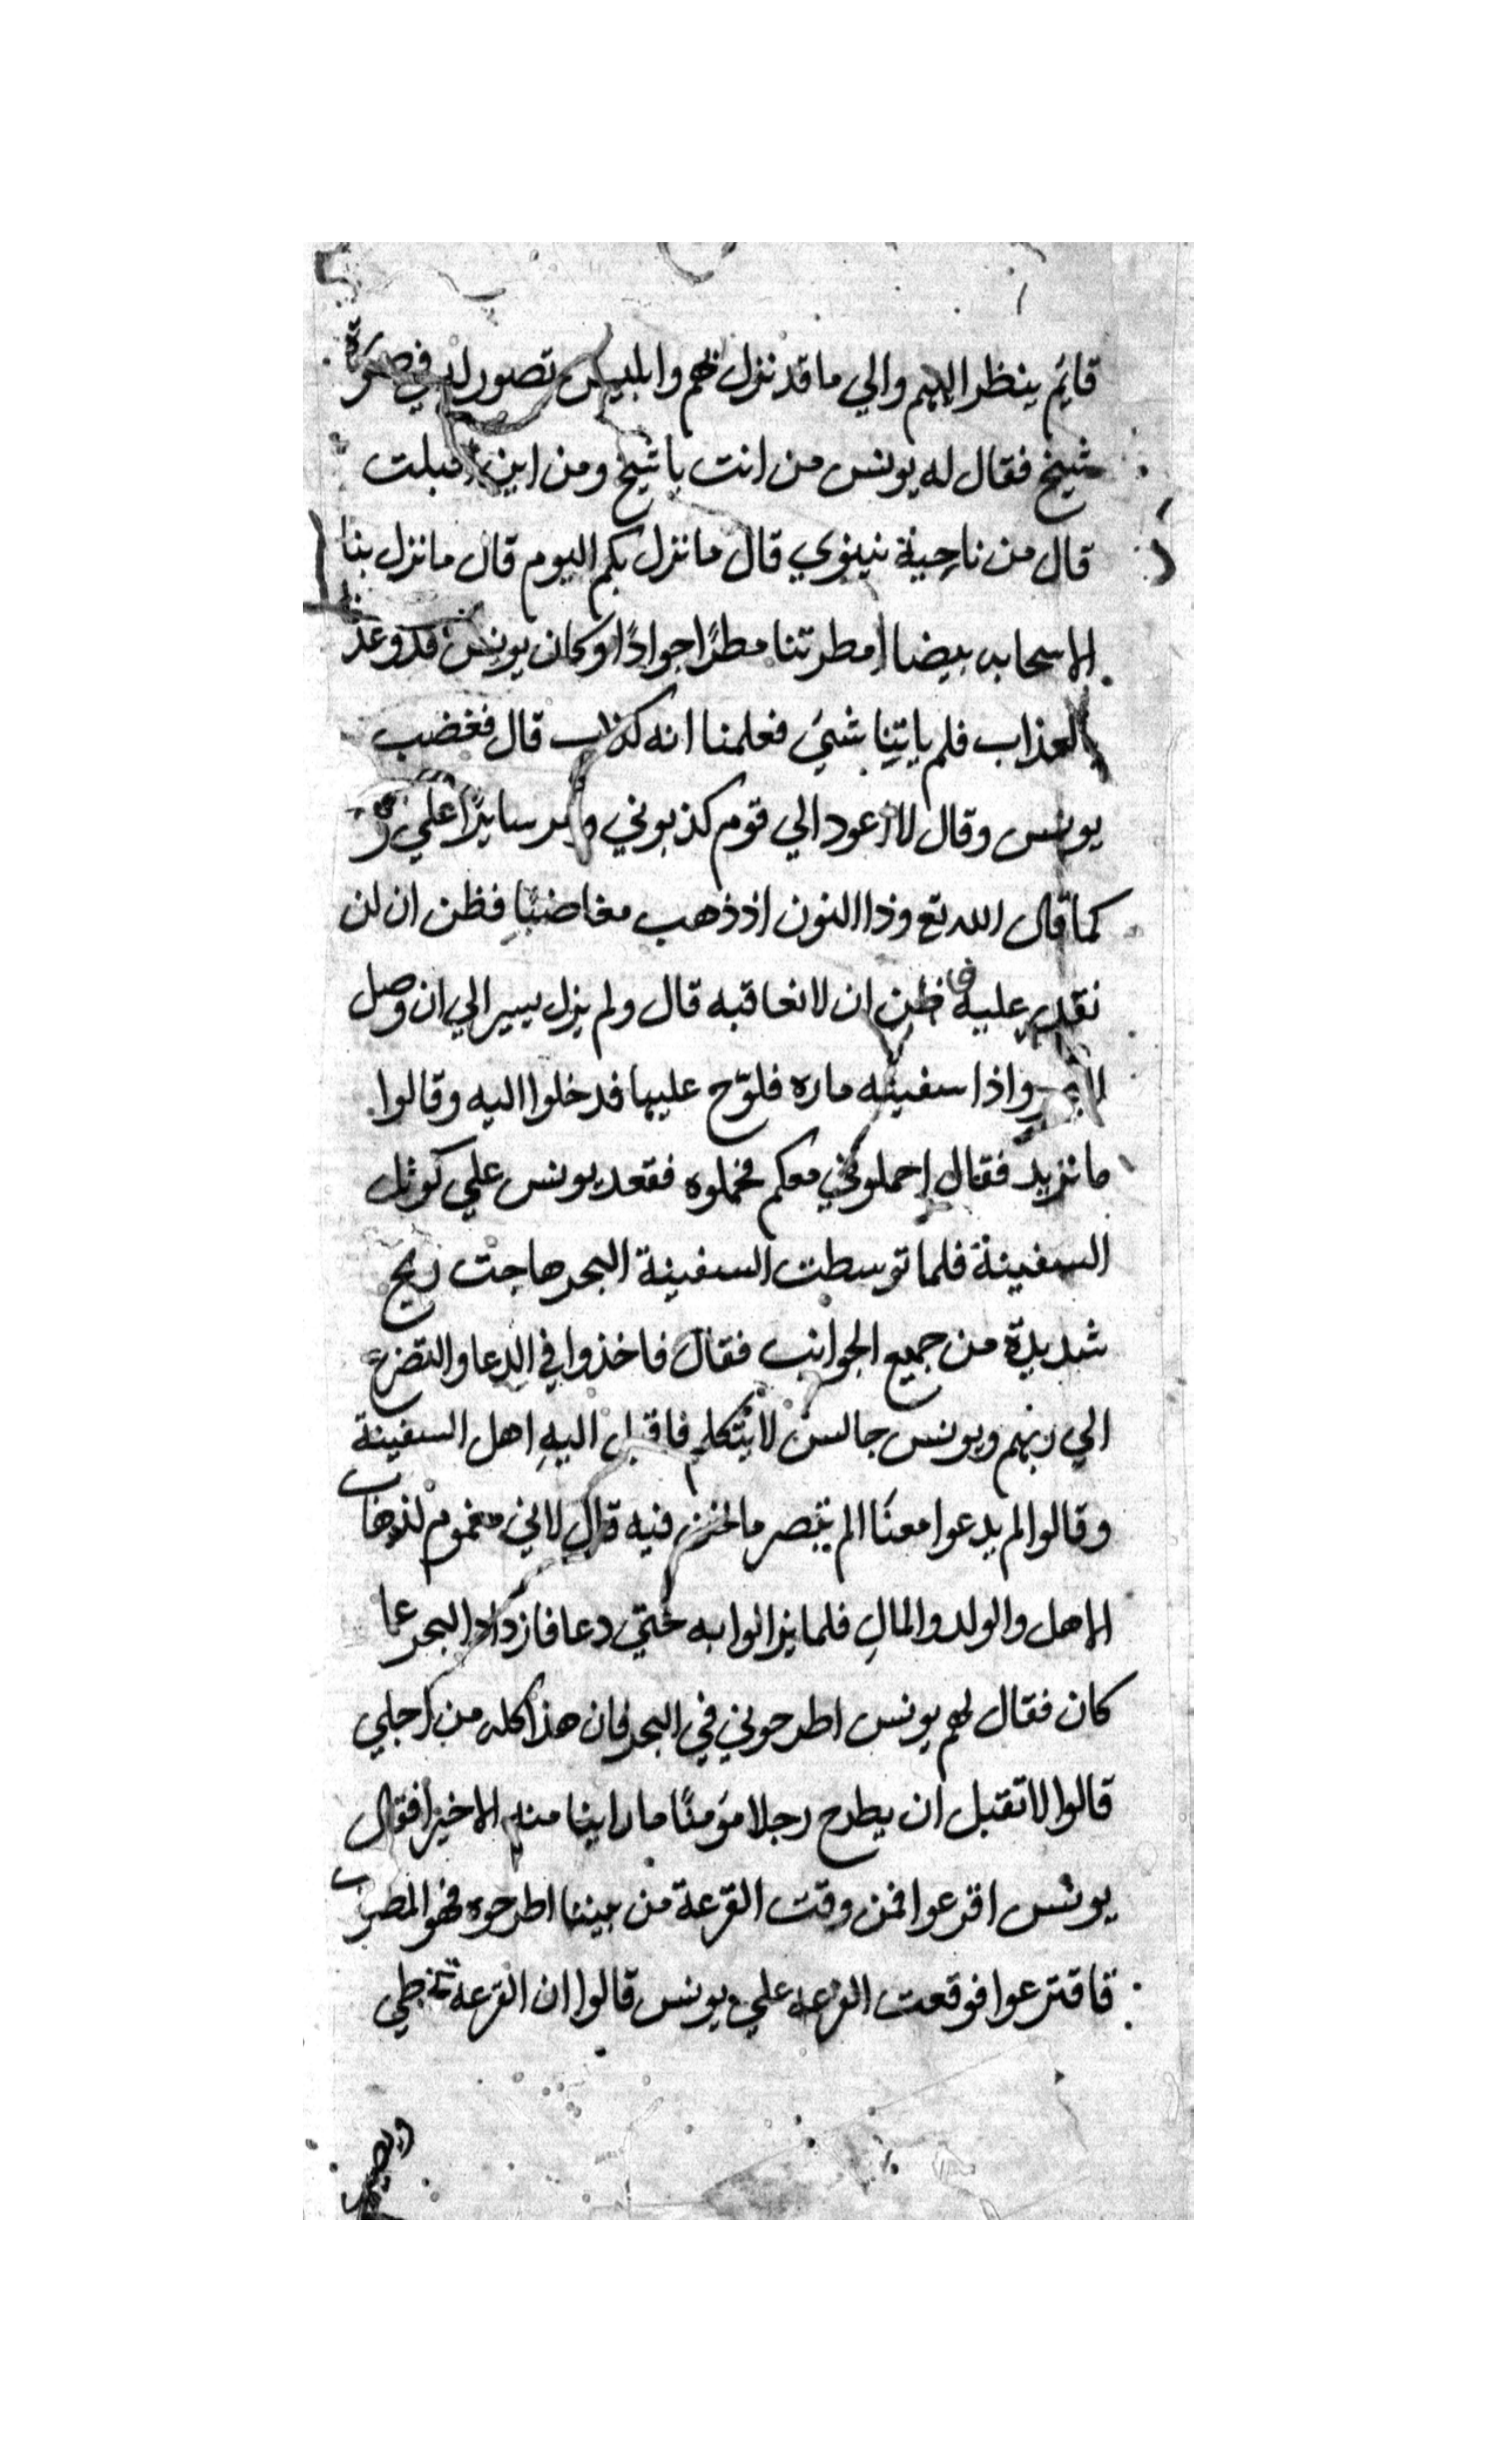 قايم ينظر اليهم والي ما قد نزل بهم وابليس تصور له في صورة
شيخ فقال له يونس من انت يا شيخ ومن اين اقبلت
قال من ناحية نينوي قال ما نزل بكم اليوم قال ما نزل بنا
الا سحابه بيضا امطرتنا مطرًا جوادًا وكان يونس قد وعد
بالعذاب فلم ياتينا بشيَ فعلمنا انه كذاب قال فغضب
يونس وقال لا اعود الي قوم كذبوني ومر سايرًا علي
كما قال الله تع وذا النون اذ ذهب مغاضبًا فظن ان لن
نقدر عليه فى ظن ان لا نعاقبه قال ولم يزل يسير الي ان وصل
واذا سفينه ماره فلوّح عليها فدخلوا اليه وقالوا
ما تريد فقال احملوني معكم فحملوه فقعد يونس علي كوثل
السفينة فلما توسطت السفينة البحر هاجت ريح
شديدة من جميع الجوانب فقال فاخذوا في الدعا والتضرع
الي ربهم ويونس جالس لا يتكلم فاقبل اليهِ اهل السفينة
وقالوا لم يدعوا معنا الم تبصر ما نحن فيه قال لاني مغموم لذهاب
الاهل والولد والمالِ فلما يزالوا به حتي دعا فازداد البحر عما
كان فقال لهم يونس اطرحوني في البحر فان هذا كله من اجلي
قالوا لا تقبل ان يطرح رجلا مؤمنًا ما راينا منه الا خيرا فقال
يونس اقرعوا فمن وقت القرعة من بيننا اطرحوه فهو المطلوب
فاقترعوا فوقعت القرعه علي يونس قالوا ان القرعة تخطي